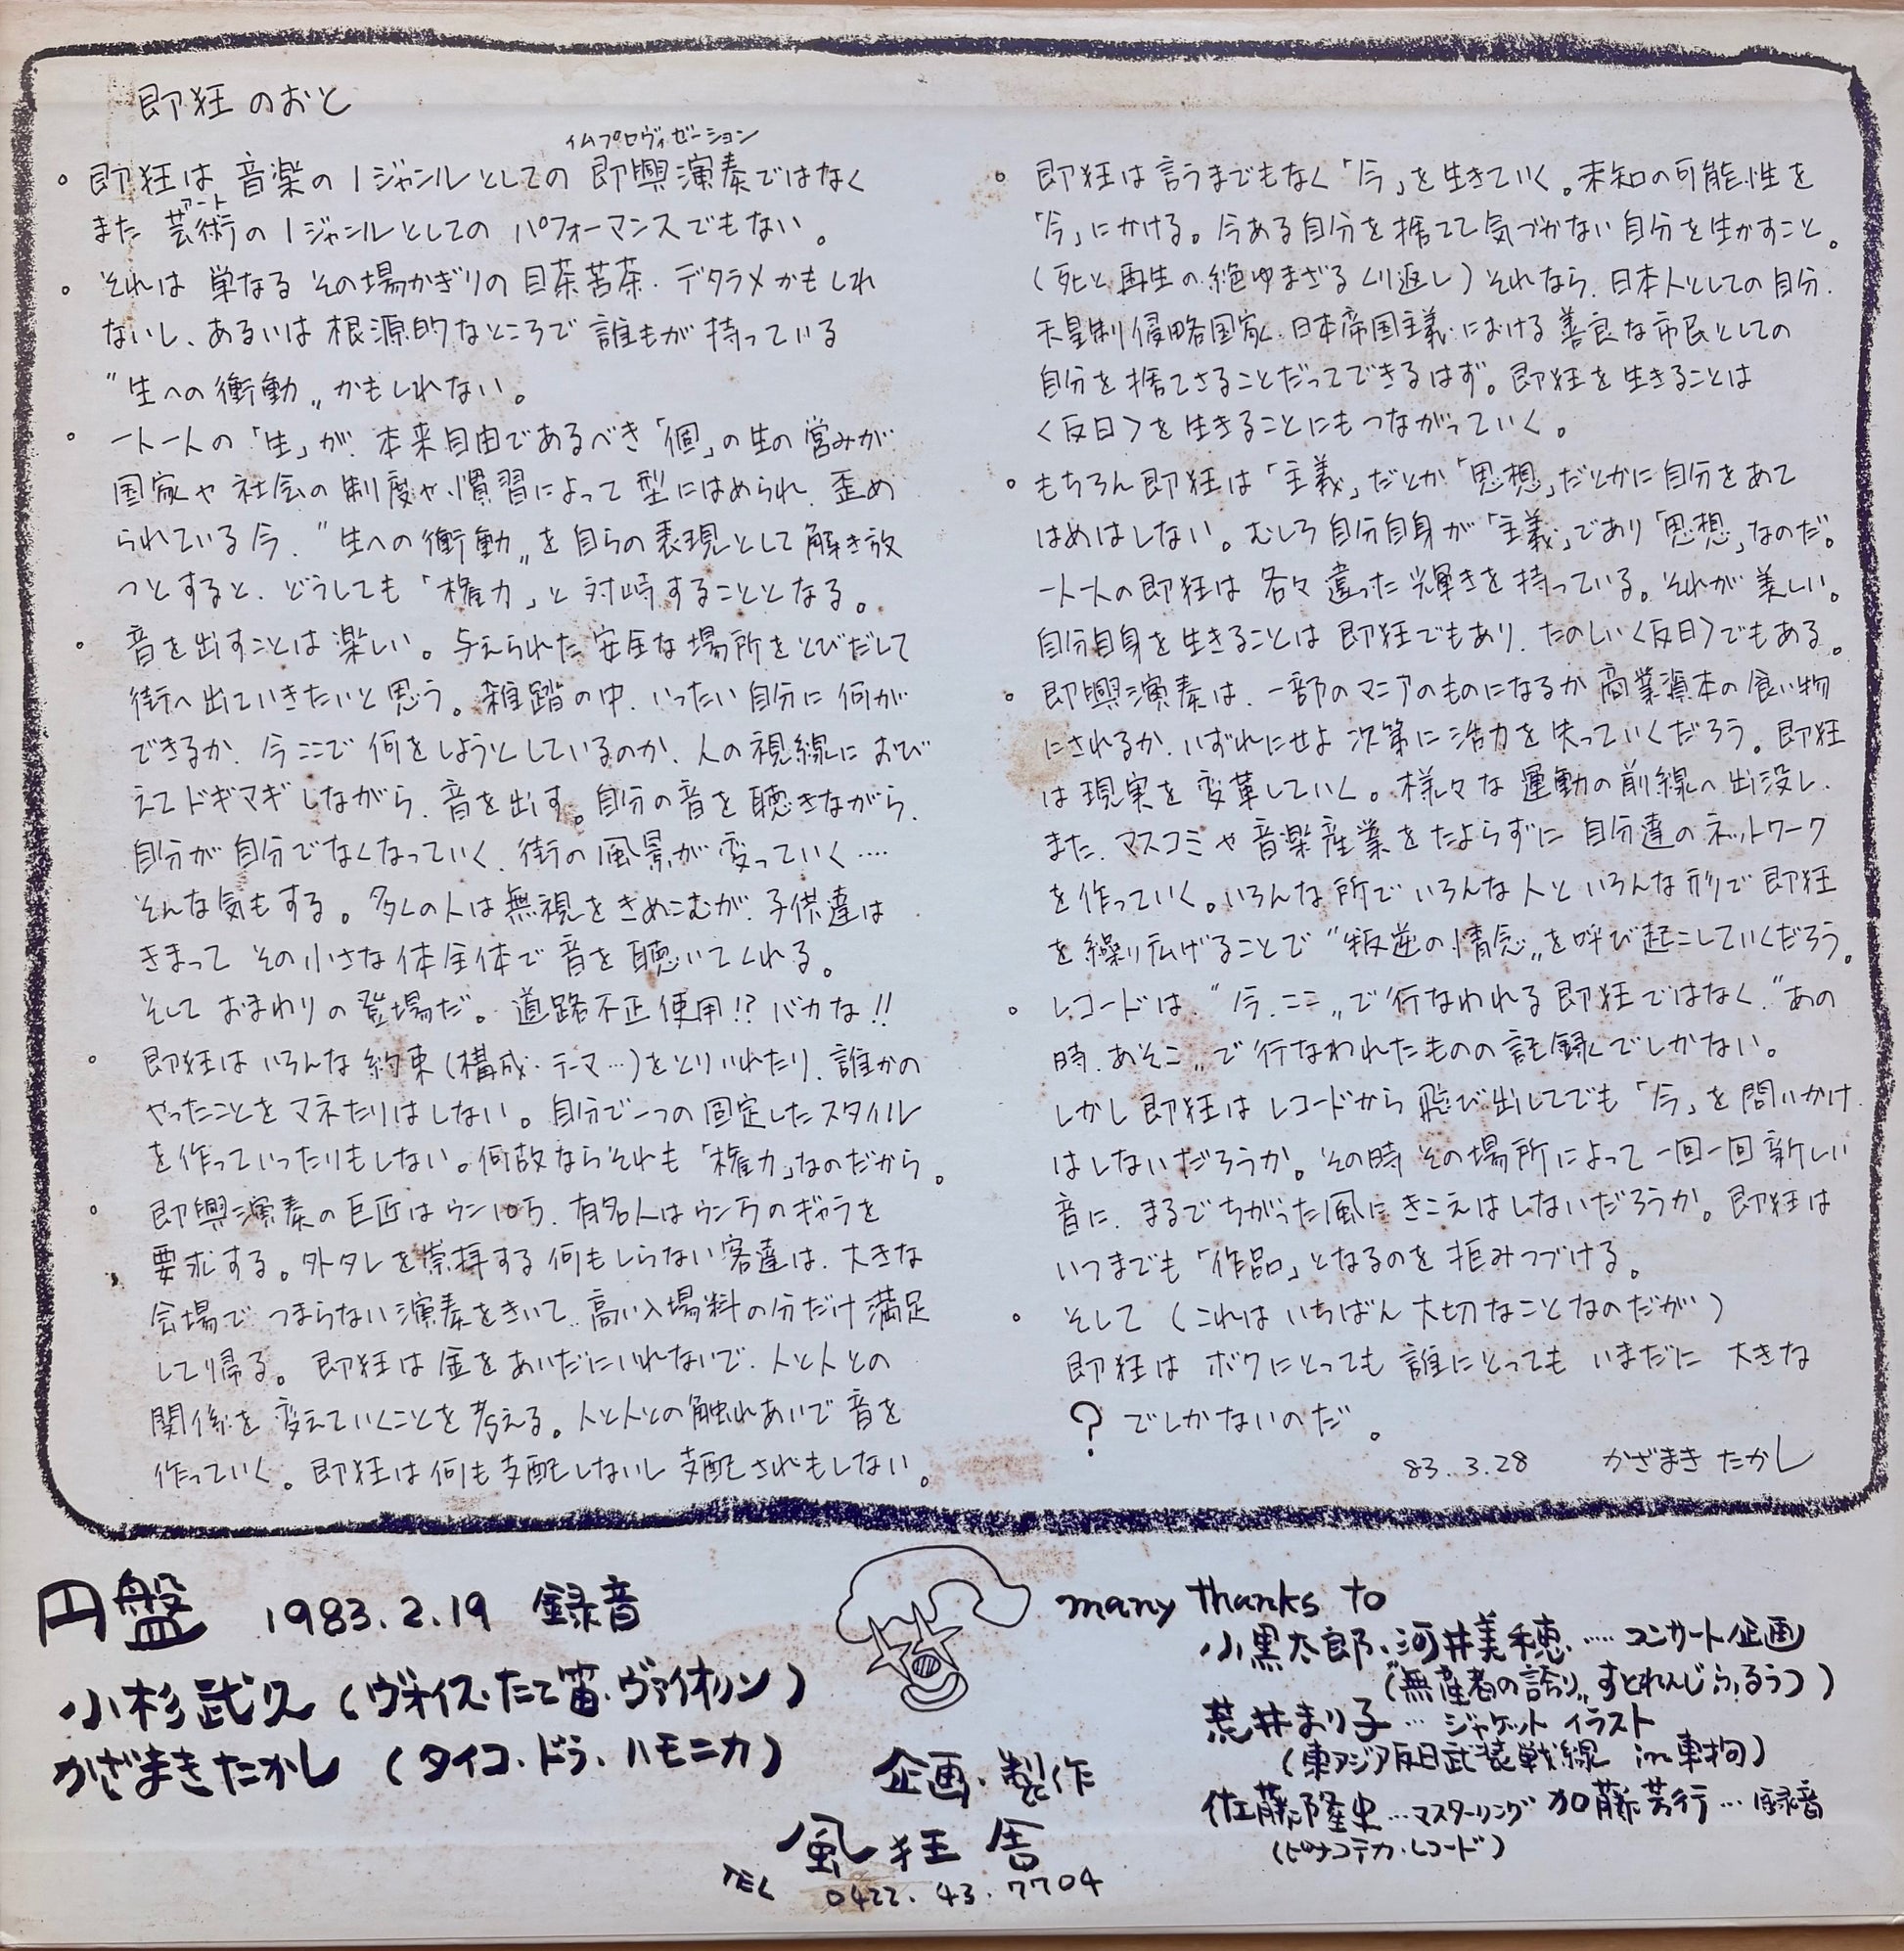 即狂のおと
イムプロヴィゼーション
。即狂は 音楽の1ジャンルとしての 即興演奏ではなく
アート
また 芸術の1ジャンルとしての パフォーマンスでもない。
。それは 単なる その場かぎりの 目茶苦茶・デタラメかもしれ
ないし、あるいは 根源的なところで 誰もが 持っている
〝生への衝動〟かもしれない。
。一人一人の「生」が、本来自由であるべき「個」の生の営みが
国家や 社会の 制度や 慣習によって 型にはめられ、歪め
られている今、〝生への衝動〟を 自らの表現として 解き放
つとすると、どうしても「権力」と 対峙することとなる。
。音を出すことは 楽しい。与えられた 安全な 場所をとびだして
街へ出ていきたいと思う。雑踏の中、いったい 自分に 何が
できるか、今ここで 何をしようとしているのか、人の視線に おび
えて ドギマギしながら、音を出す。自分の音を 聴きながら、
自分が 自分でなくなっていく、街の風景が 変っていく‥‥
そんな気もする。多くの人は無視をきめこむが、子供達は
きまって その小さな 体全体で 音を 聴いてくれる。
そして おまわりの 登場だ。道路不正使用!? バカな!!
。即狂は いろんな 約束(構成・テーマ…)をとりいれたり、誰かの
やったことを マネたりはしない。自分で一つの 固定したスタイル
を作っていったりもしない。何故ならそれも「権力」なのだから。
。即興演奏の巨匠はウン10万、有名人はウン万のギャラを
要求する。外タレを崇拝する 何もしらない客達は、大きな
会場で つまらない演奏をきいて、高い入場料の分だけ 満足
して帰る。即狂は 金を あいだにいれないで、人と人との
関係を 変えていくことを 考える。人と人との触れあいで 音を
作っていく。即狂は 何も 支配しないし 支配されもしない。
。即狂は言うまでもなく「今」を生きていく。未知の可能性を
「今」にかける。今ある自分を捨てて気づかない自分を生かすこと。
(死と再生の絶ゆまざるくり返し)それなら、日本人としての自分、
天皇制侵略国家・日本帝国主義における 善良な市民としての
自分を 捨てさることだってできるはず。即狂を 生きることは
〈反日〉を 生きることにもつながっていく。
。もちろん即狂は「主義」だとか「思想」だとかに自分をあて
はめはしない。むしろ自分自身が「主義」であり「思想」なのだ。
一人一人の即狂は 各々違った 輝きを 持っている。それが 美しい。
自分自身を生きることは 即狂でもあり、たのしい〈反日〉でもある。
。即興演奏は、一部のマニアのものになるか 商業資本の食い物
にされるか、いずれにせよ 次第に 活力を 失っていくだろう。即狂
は 現実を 変革していく。様々な 運動の前線へ 出没し、
また、マスコミや 音楽産業をたよらずに 自分達のネットワーク
を作っていく。いろんな所で いろんな人と いろんな形で 即狂
を繰り広げることで〝叛逆の情念〟を呼び起こしていくだろう。
。レコードは、〝今、ここ〟で 行なわれる 即狂ではなく、〝あの
時、あそこ〟で 行なわれたものの 記録でしかない。
しかし 即狂は レコードから 飛び出してでも「今」を 問いかけ
はしないだろうか。その時 その場所によって 一回一回 新しい
音に、まるでちがった風に きこえはしないだろうか。即狂は
いつまでも「作品」となるのを 拒みつづける。
。そして (これは いちばん 大切なことなのだが)
即狂は ボクにとっても 誰にとっても いまだに 大きな
? でしかないのだ。
83.3.28 かざまき たかし
円盤 1983.2.19 録音
小杉武久(ヴォイス・たて笛・ヴァイオリン)
かざまきたかし (タイコ・ドラ・ハモニカ)
企画・製作
風狂舎
TEL 0422.43.7704
many thanks to
小黒太郎・河井美穂 ‥‥ コンサート企画
(〝無産者の誇り〟すとれんじふるうつ)
荒井まり子 … ジャケット イラスト
(東アジア反日武装戦線 in 東拘)
佐藤隆史 … マスターリング 加藤芳行 … 録音
(ピナコテカ・レコード)